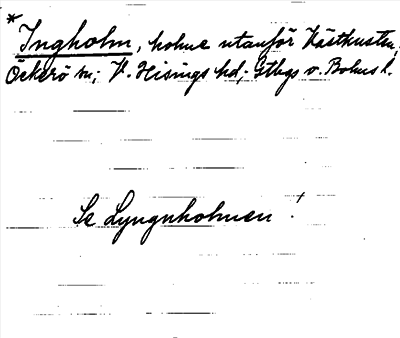 * Ingholm, holme utanför Västkusten,
Öckerö sn; V. Hisings hd; Gtbgs o. Bohus l.
Se Lyngnholmen!